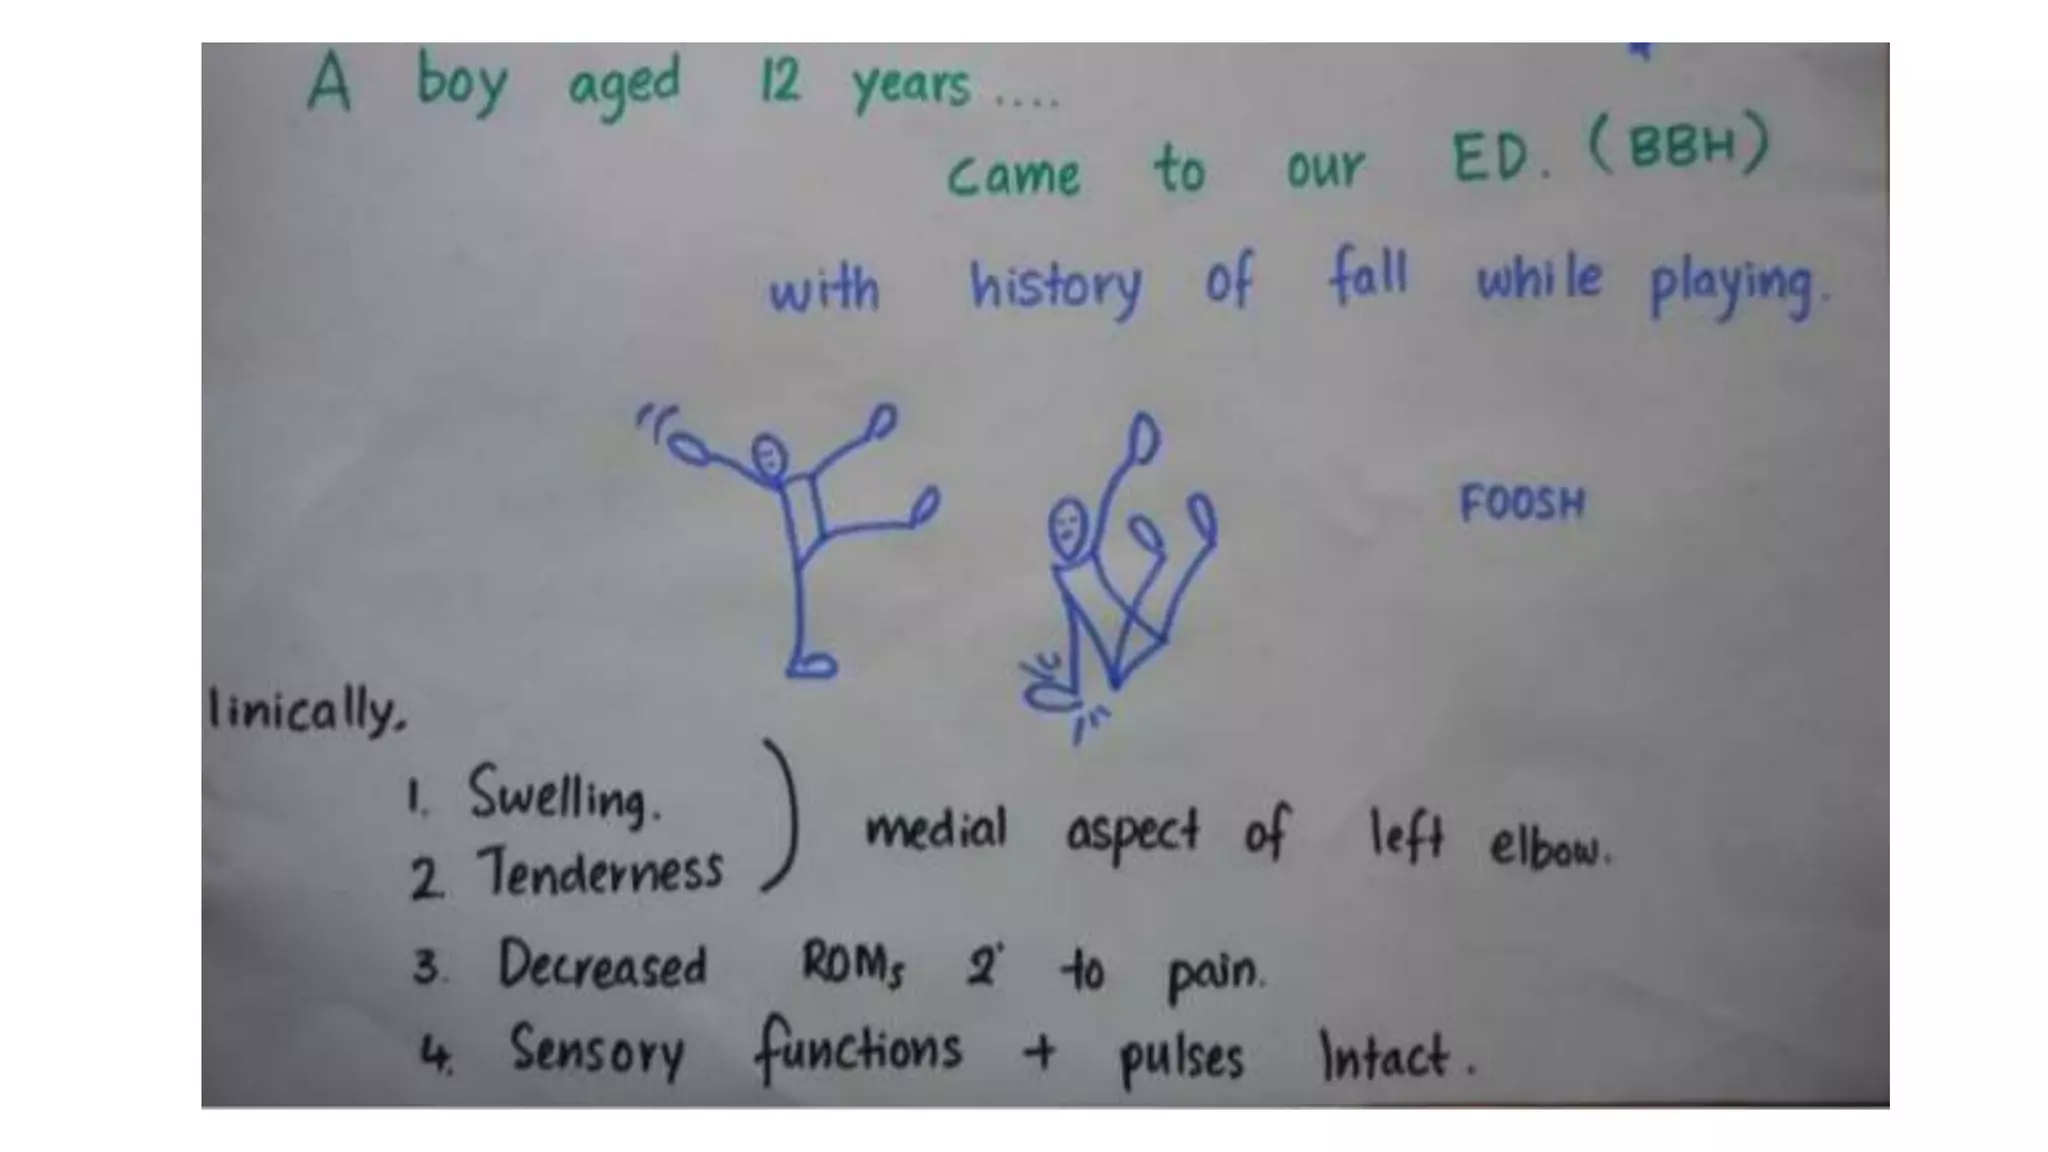 A boy aged 12 years ....
came to our ED. (BBH)
with history of fall while playing.
FOOSH
linically.
1. Swelling.
2. Tenderness ) medial aspect of left elbow.
3. Decreased ROMs 2° to pain.
4. Sensory functions + pulses Intact.